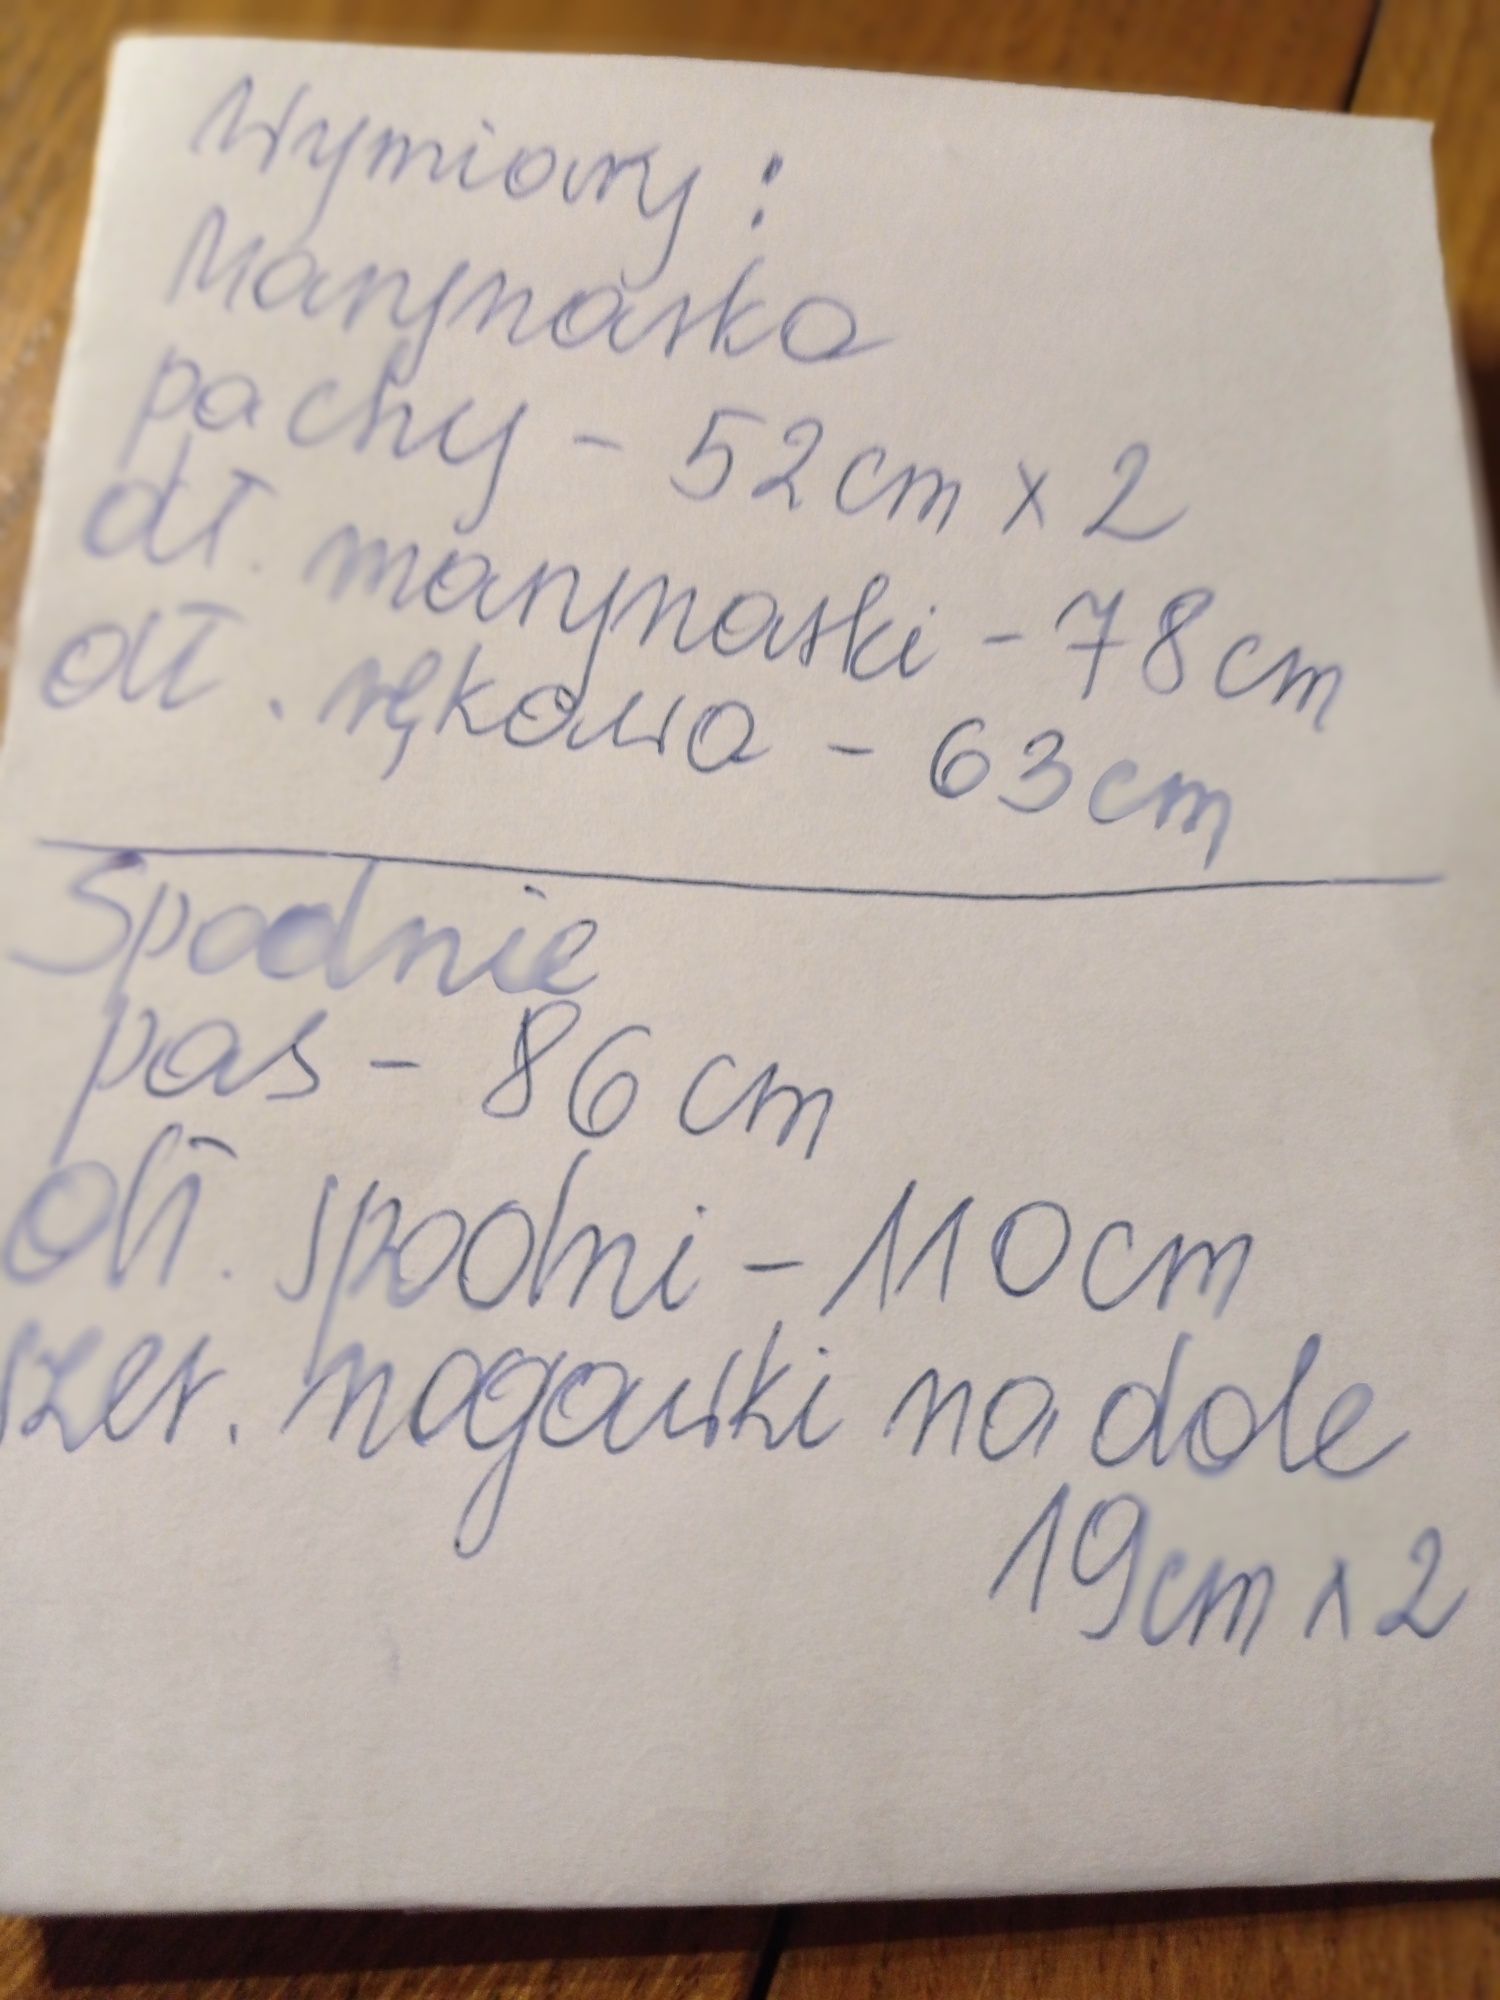 Wymiary:
Marynarka
pachy - 52cm x 2
dł. marynarki - 78cm
dł. rękawa - 63cm
Spodnie
pas - 86cm
dł. spodni - 110cm
szer. nogawki na dole
19cm x 2